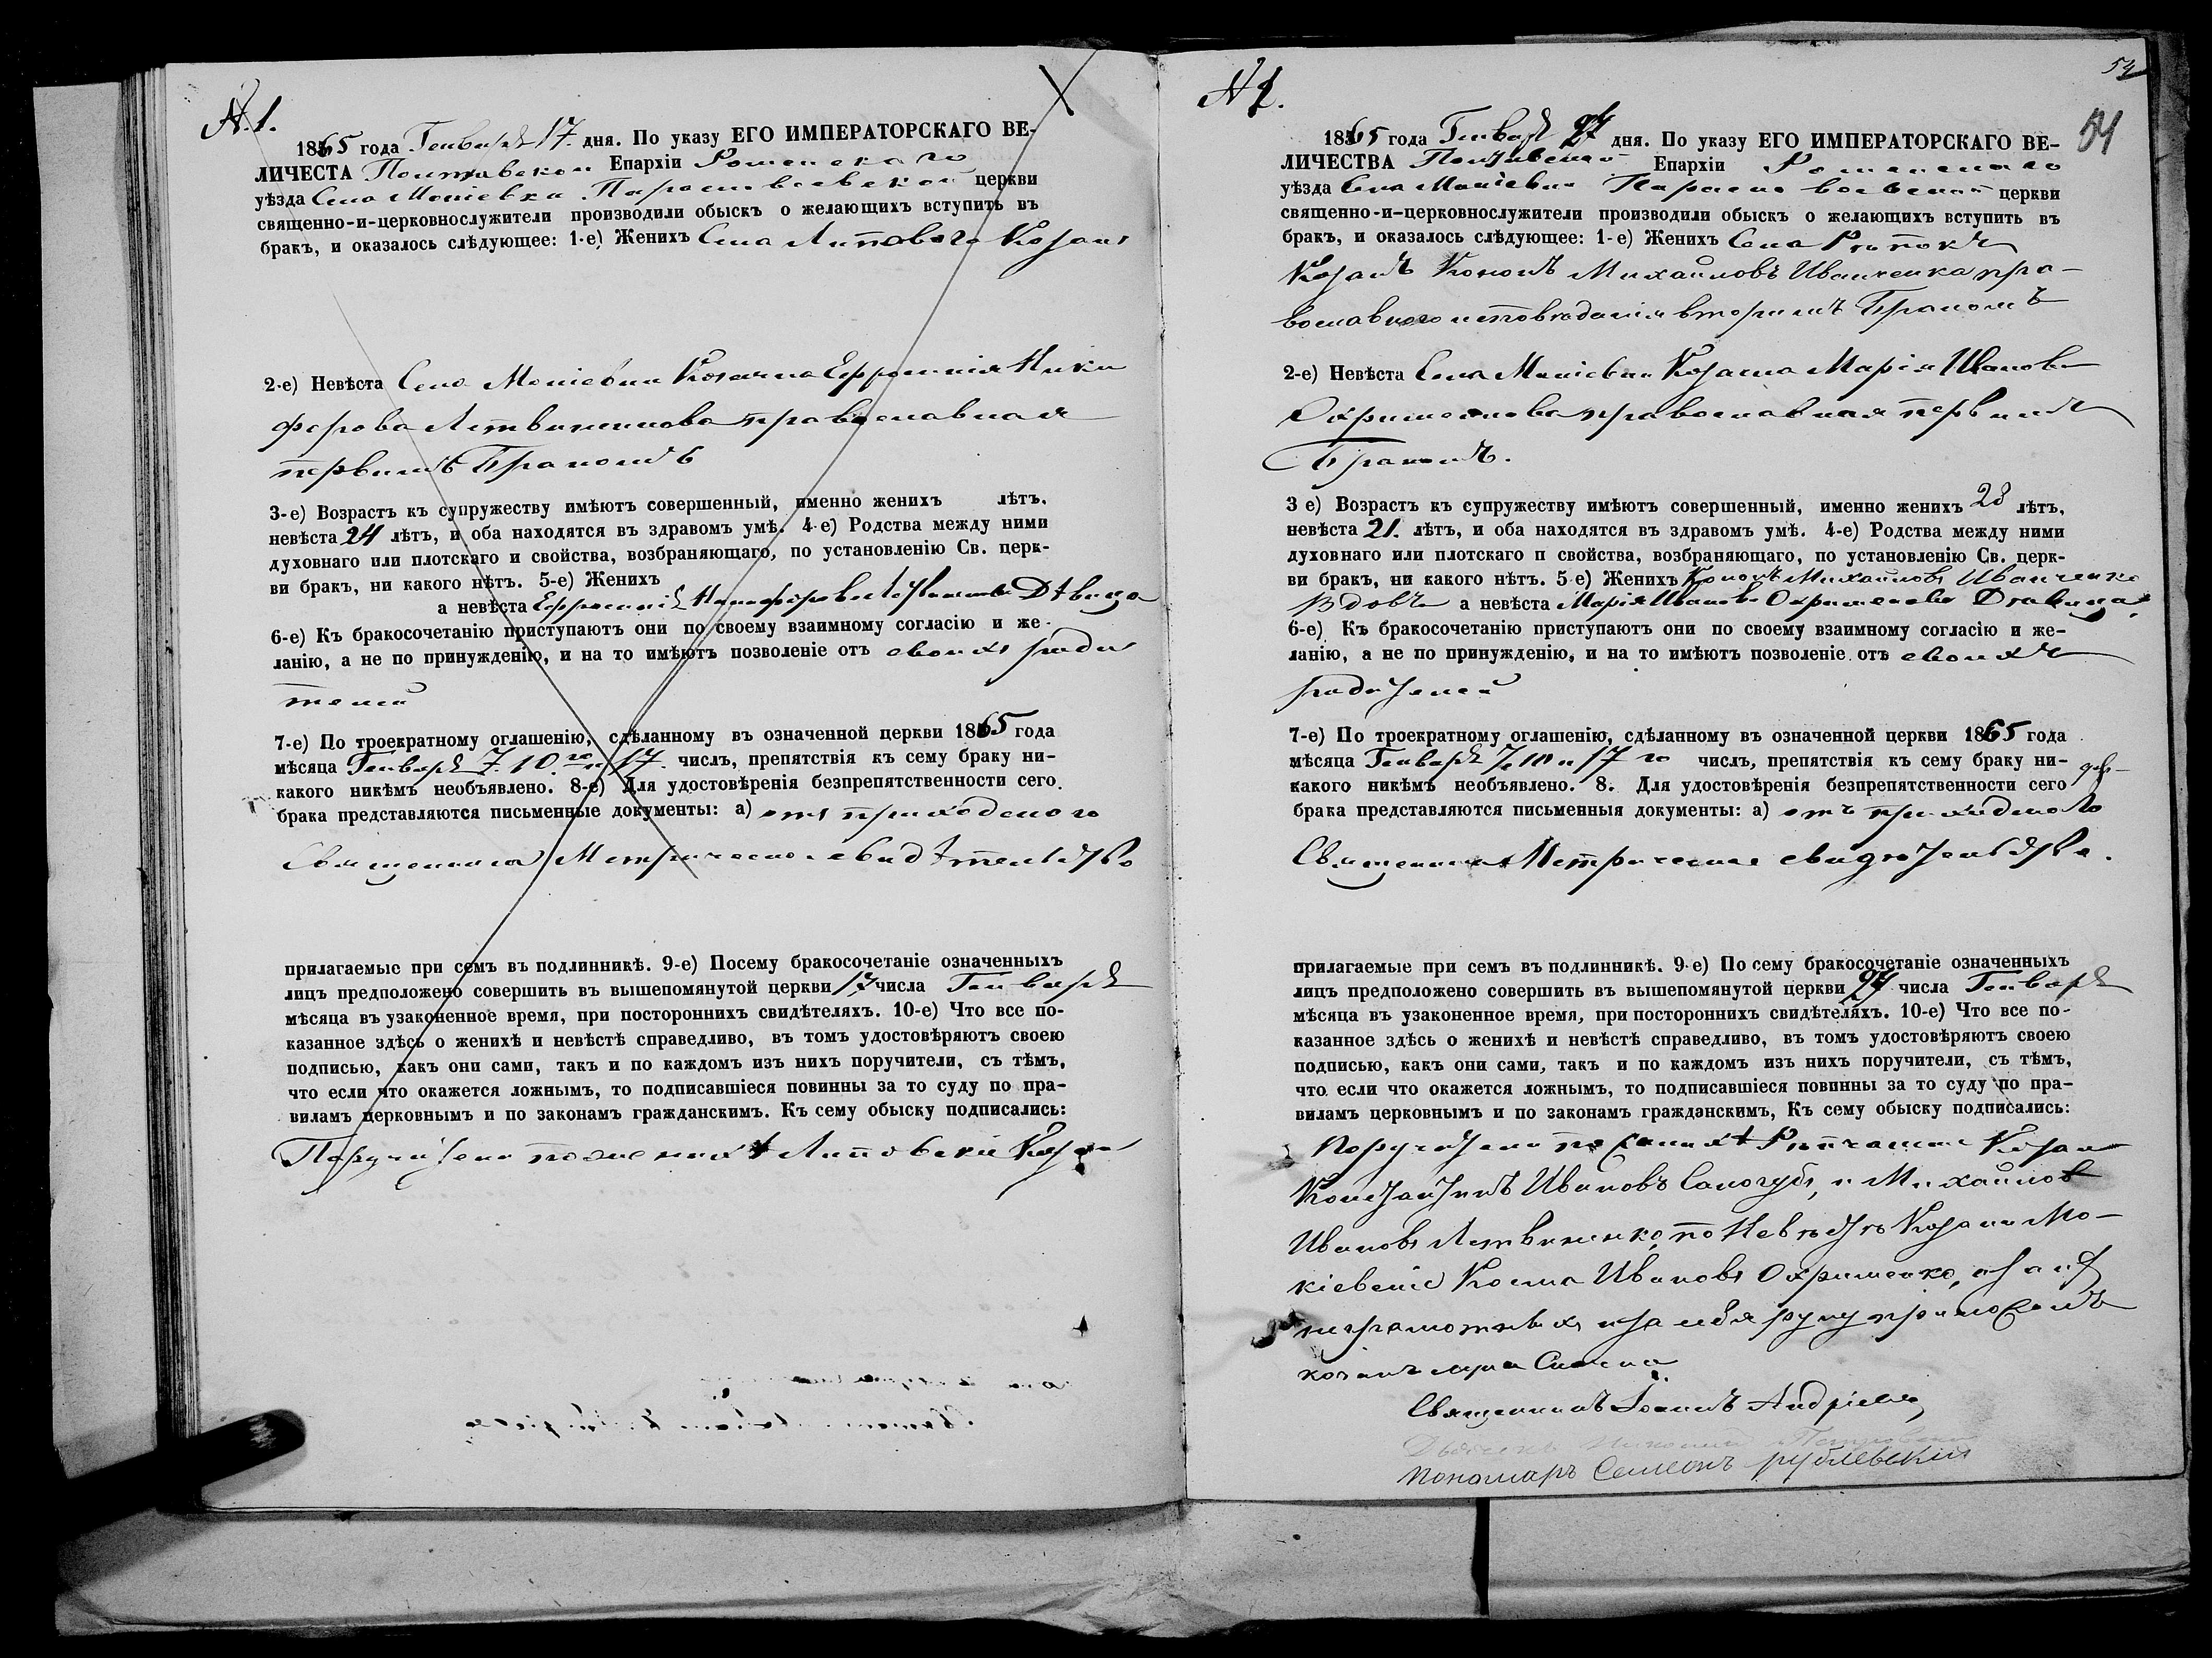 № 1.
1865 года Генваря 17. дня. По указу ЕГО ИМПЕРАТОРСКАГО ВЕ-
ЛИЧЕСТА Полтавской Епархіи Роменскаго
уѣзда Села Мокіевки Параскевіевской церкви
священно-и-церковнослужители производили обыскъ о желающихъ вступить въ
бракъ, и оказалось слѣдующее: 1-е) Женихъ Села Липового Козакъ
2-е) Невѣста Села Мокіевки Козачка Ефросинія Ники
форова Литвиненкова православная
первымъ бракомъ
3-е) Возрастъ къ супружеству имѣютъ совершенный, именно женихъ лѣтъ.
невѣста 24 лѣтъ, и оба находятся въ здравомъ умѣ. 4-е) Родства между ними
духовнаго или плотскаго и свойства, возбраняющаго, по установленію Св. церк-
ви бракъ, ни какого нѣтъ. 5-е) Женихъ
а невѣста Ефросинія Никифорова Дѣвица
6-е) Къ бракосочетанію приступаютъ они по своему взаимному согласію и же-
ланію, а не по принужденію, и на то имѣютъ позволеніе отъ своихъ роди
телей
7-е) По троекратному оглашенію, сдѣланному въ означенной церкви 1865 года
мѣсяца Генваря 7. 10. и 17. числъ, препятствія къ сему браку ни-
какого никѣмъ необъявлено. 8-е) Для удостовѣренія безпрепятственности сего
брака представляются письменные документы: а) отъ приходского
Священника Метрическое свидѣтельство
прилагаемые при семъ въ подлинникѣ. 9-е) Посему бракосочетаніе означенныхъ
лицъ предположено совершить въ вышепомянутой церкви 17 числа Генваря
мѣсяца въ узаконенное время, при постороннихъ свидѣтеляхъ. 10-е) Что все по-
казанное здѣсь о женихѣ и невѣстѣ справедливо, въ томъ удостовѣряютъ своею
подписью, какъ они сами, такъ и по каждомъ изъ нихъ поручители, съ тѣмъ,
что если что окажется ложнымъ, то подписавшіеся повинны за то суду по пра-
виламъ церковнымъ и по законамъ гражданскимъ. Къ сему обыску подписались:
Поручители по женихѣ Липовскіе Козаки
54
№ 1.
54
1865 года Генваря 27 дня. По указу ЕГО ИМПЕРАТОРСКАГО ВЕ-
ЛИЧЕСТВА Полтавской Епархіи Роменскаго
уѣзда Села Мокіевки Параскевіевской церкви
священно-и-церковнослужители производили обыскъ о желающихъ вступить въ
бракъ, и оказалось слѣдующее: 1-е) Женихъ Села Рѣпокъ
Козакъ Кононъ Михайловъ Иванченко пра-
вославного исповѣданія вторымъ бракомъ
2-е) Невѣста Села Мокіевки Козачка Марія Иванова
Охрименкова православная первымъ
бракомъ.
3 е) Возрастъ къ супружеству имѣютъ совершенный, именно женихъ 28 лѣтъ,
невѣста 21. лѣтъ, и оба находятся въ здравомъ умѣ. 4-е) Родства между ними
духовнаго или плотскаго п свойства, возбраняющаго, по установленію Св. церк-
ви бракъ, ни какого нѣтъ. 5 е) Женихъ Кононъ Михайловъ Иванченко
Вдовъ а невѣста Марія Иванова Охрименкова Дѣвица
6-е) Къ бракосочетанію приступаютъ они по своему взаимному согласію и же-
ланію, а не по принужденію, и на то имѣютъ позволеніе отъ своихъ
родителей
7-е) По троекратному оглашенію, сдѣланному въ означенной церкви 1865 года
мѣсяца Генваря 7, 10 и 17 го числъ, препятствія къ сему браку ни-
какого никѣмъ необъявлено. 8. Для удостовѣренія безпрепятственности сего
брака представляются письменныя документы: а) отъ приходского
Священника Метрическое свидѣтельство.
прилагаемые при семъ въ подлинникѣ. 9-е) По сему бракосочетаніе означенныхъ
лицъ предположено совершить въ вышепомянутой церкви 27 числа Генваря
мѣсяца въ узаконенное время, при постороннихъ свидѣтеляхъ. 10-е) Что все по-
казанное здѣсь о женихѣ и невѣстѣ справедливо, въ томъ удостовѣряютъ своею
подписью, какъ они сами, такъ и по каждомъ изъ нихъ поручители, съ тѣмъ,
что если что окажется ложнымъ, то подписавшіеся повинны за то суду по пра-
виламъ церковнымъ и по законамъ гражданскимъ, Къ сему обыску подписались:
Поручители по женихѣ Рѣпчанскіе Козаки
Константинъ Ивановъ Самогубъ, и Михайловъ
Ивановъ Литвиненко, по Невѣстѣ Козаки Мо-
кіевскіе Косма Ивановъ Охрименко, а за ихъ
неграмотныхъ и за себя руку приложилъ
козакъ
Священникъ Іоаннъ Андріевъ
Дьячекъ Николай
Пономарь Семенъ рублевскій